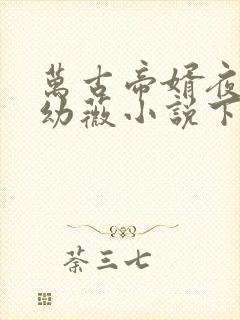 萬古帝婿夜
幼薇小説下
荼三七